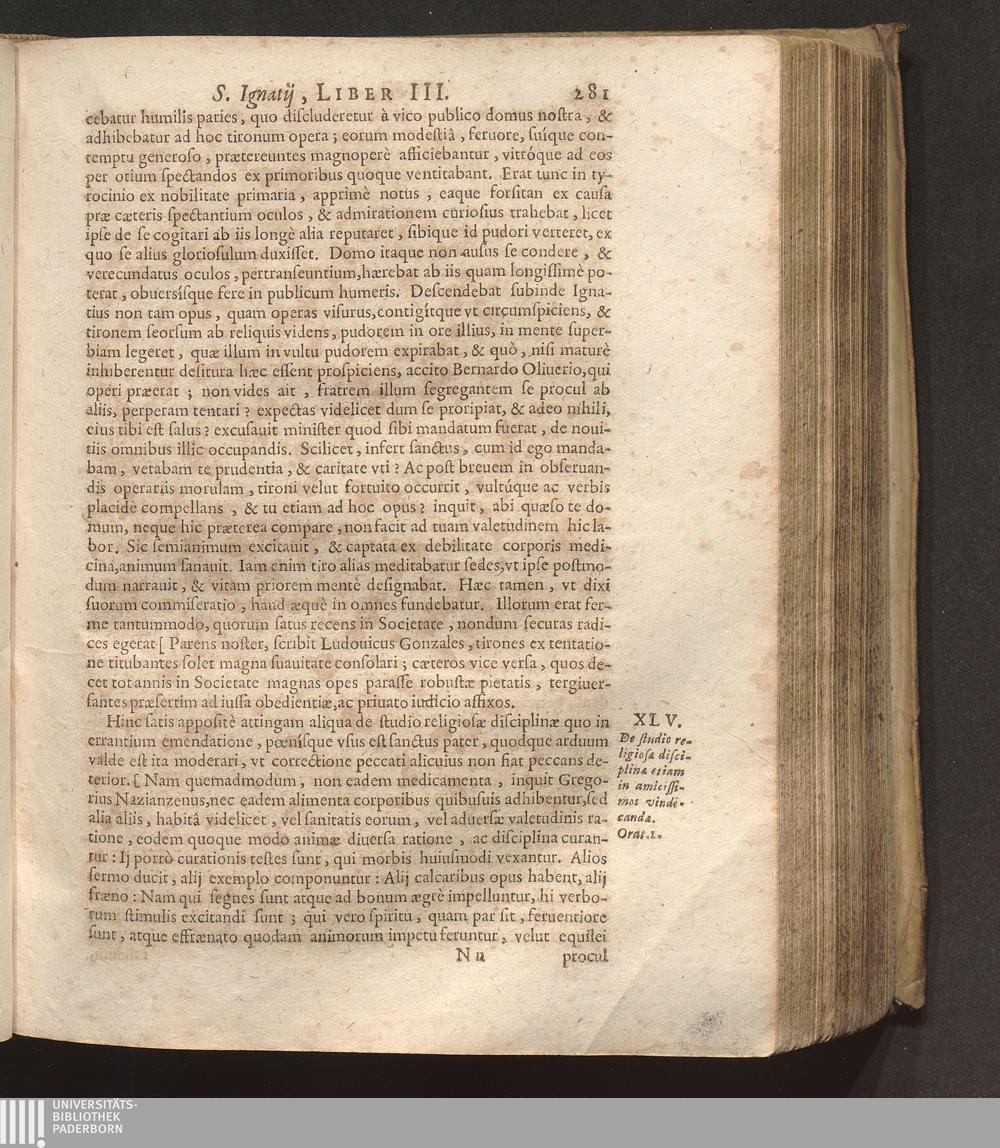 S. Ignatij, LIBER III. 281
cebatur humilis paries, quo diſcluderetur à vico publico domus noſtra, &
adhibebatur ad hoc tironum opera; eorum modeſtiâ, feruore, ſuíque con-
temptu generoſo, prætereuntes magnoperè afficiebantur, vitróque ad eos
per otium ſpectandos ex primoribus quoque ventitabant. Erat tunc in ty-
rocinio ex nobilitate primaria, apprimè notus, eaque forſitan ex cauſa
præ cæteris ſpectantium oculos, & admirationem curioſius trahebat, licet
ipſe de ſe cogitari ab iis longè alia reputaret, ſibique id pudori verteret, ex
quo ſe alius glorioſulum duxiſſet. Domo itaque non auſus ſe condere, &
verecundatus oculos, pertranſeuntium, hærebat ab iis quam longiſſimè po-
terat, obuersíſque fere in publicum humeris. Deſcendebat ſubinde Igna-
tius non tam opus, quam operas viſurus, contigítque vt circumſpiciens, &
tironem ſeorſum ab reliquis videns, pudorem in ore illius, in mente ſuper-
biam legeret, quæ illum in vultu pudorem expirabat, & quò, niſi maturè
inhiberentur deſitura hæc eſſent proſpiciens, accito Bernardo Oliuerio, qui
operi præerat; non vides ait, fratrem illum ſegregantem ſe procul ab
aliis, perperam tentari? expectas videlicet dum ſe proripiat, & adeo nihili,
eius tibi eſt ſalus? excuſauit miniſter quod ſibi mandatum fuerat, de noui-
tiis omnibus illic occupandis. Scilicet, infert ſanctus, cum id ego manda-
bam, vetabam te prudentia, & caritate vti? Ac poſt breuem in obſeruan-
dis operariis morulam, tironi velut fortuito occurrit, vultúque ac verbis
placidè compellans, & tu etiam ad hoc opus? inquit, abi quæſo te do-
mum, neque hic præterea compare, non facit ad tuam valetudinem hic la-
bor. Sic ſemianimum excitauit, & captata ex debilitate corporis medi-
cina, animum ſanauit. Iam enim tiro alias meditabatur ſedes, vt ipſe poſtmo-
dum narrauit, & vitam priorem mentè deſignabat. Hæc tamen, vt dixi
ſuorum commiſeratio, haud æquè in omnes fundebatur. Illorum erat fer-
me tantummodo, quorum ſatus recens in Societate, nondum ſecuras radi-
ces egerat [ Parens noſter, ſcribit Ludouicus Gonzales, tirones ex tentatio-
ne titubantes ſolet magna ſuauitate conſolari; cæteros vice verſa, quos de-
cet tot annis in Societate magnas opes paraſſe robuſtæ pietatis, tergiuer-
ſantes præſertim ad iuſſa obedientiæ, ac priuato iudicio affixos.
Hinc ſatis appoſitè attingam aliqua de ſtudio religioſæ diſciplinæ quo in
errantium emendatione, pœníſque vſus eſt ſanctus pater, quodque arduum
valde eſt ita moderari, vt correctione peccati alicuius non fiat peccans de-
terior. [ Nam quemadmodum, non eadem medicamenta, inquit Grego-
rius Nazianzenus, nec eadem alimenta corporibus quibuſuis adhibentur, ſed
alia aliis, habitâ videlicet, vel ſanitatis eorum, vel aduerſæ valetudinis ra-
tione, eodem quoque modo animæ diuerſa ratione, ac diſciplina curan-
tur: Ij porrò curationis teſtes ſunt, qui morbis huiuſmodi vexantur. Alios
ſermo ducit, alij exemplo componuntur: Alij calcaribus opus habent, alij
fræno: Nam qui ſegnes ſunt atque ad bonum ægrè impelluntur, hi verbo-
rum ſtimulis excitandi ſunt; qui vero ſpiritu, quam par ſit, feruentiore
ſunt, atque effrænato quodam animorum impetu feruntur, velut equilei
N n procul
XLV.
De ſtudio re-
ligioſa diſci-
plina etiam
in amiciſſi-
mos vindi-
canda.
Orat. 1.
UNIVERSITÄTS-
BIBLIOTHEK
PADERBORN